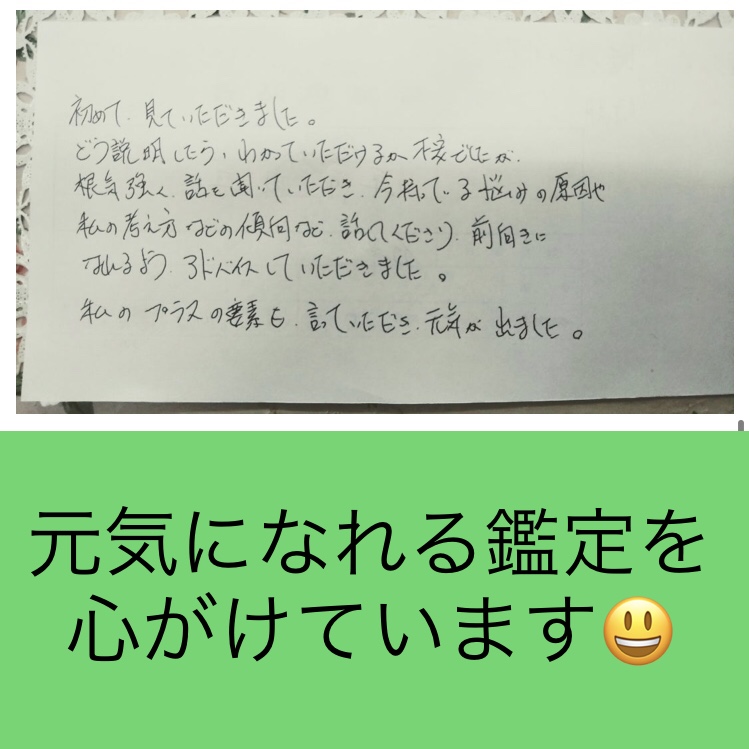 初めて、見ていただきました。
どう説明したら、わかっていただけるか、不安でしたが、
根気強く、話を聞いていただき、今私っている悩みの原因や
私の考え方などの傾向など、話してくださり、前向きに
なれるよう、アドバイスしていただきました。
私のプラスの要素も、言っていただき、元気が出ました。
元気になれる鑑定を
心がけています😃